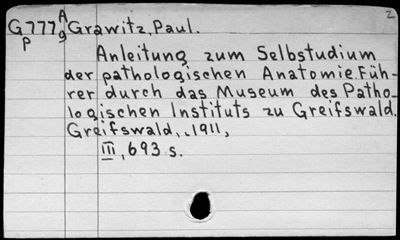 A 2
G 777 9 Grawitz, Paul.
p
Anleitung zum Selbstudium
der pathologischen Anatomie. Füh-
rer durch das Museum des Patho-
logischen Instituts zu Greifswald.
Greifswald, 1911,
III, 693 s.